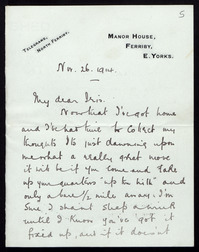 5
MANOR HOUSE,
FERRIBY,
E. YORKS.
TELEGRAMS,
NORTH FERRIBY.
Nov. 26. 1914.
My dear Iris.
Now that I've got home
and I've had time to collect my
thoughts It's just dawning upon
me what a really great move
it will be if you come and take
up your quarters "up the hill" and
only a mile/½ mile away. I'm
sure I shan't sleep a wink
until I know you've got it
fixed up, and if it doesn't